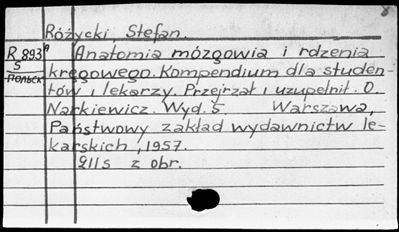 Różycki, Stefan.
R 893 a Anatomia mózgowia i rdzenia
S kręgowego. Kompendium dla studen-
Польск tów i lekarzy. Przejrzał i uzupełnił. O.
Narkiewicz. Wyd. 5. Warszawa,
Państwowy zakład wydawnictw le-
karskich, 1957.
211s z obr.